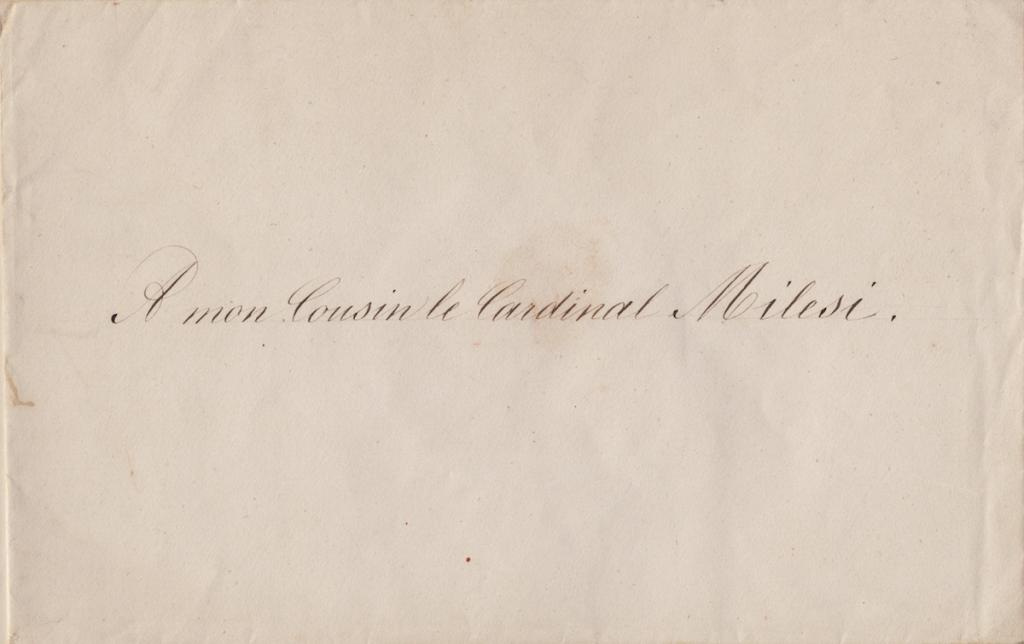 A mon Cousin le Cardinal Milesi.